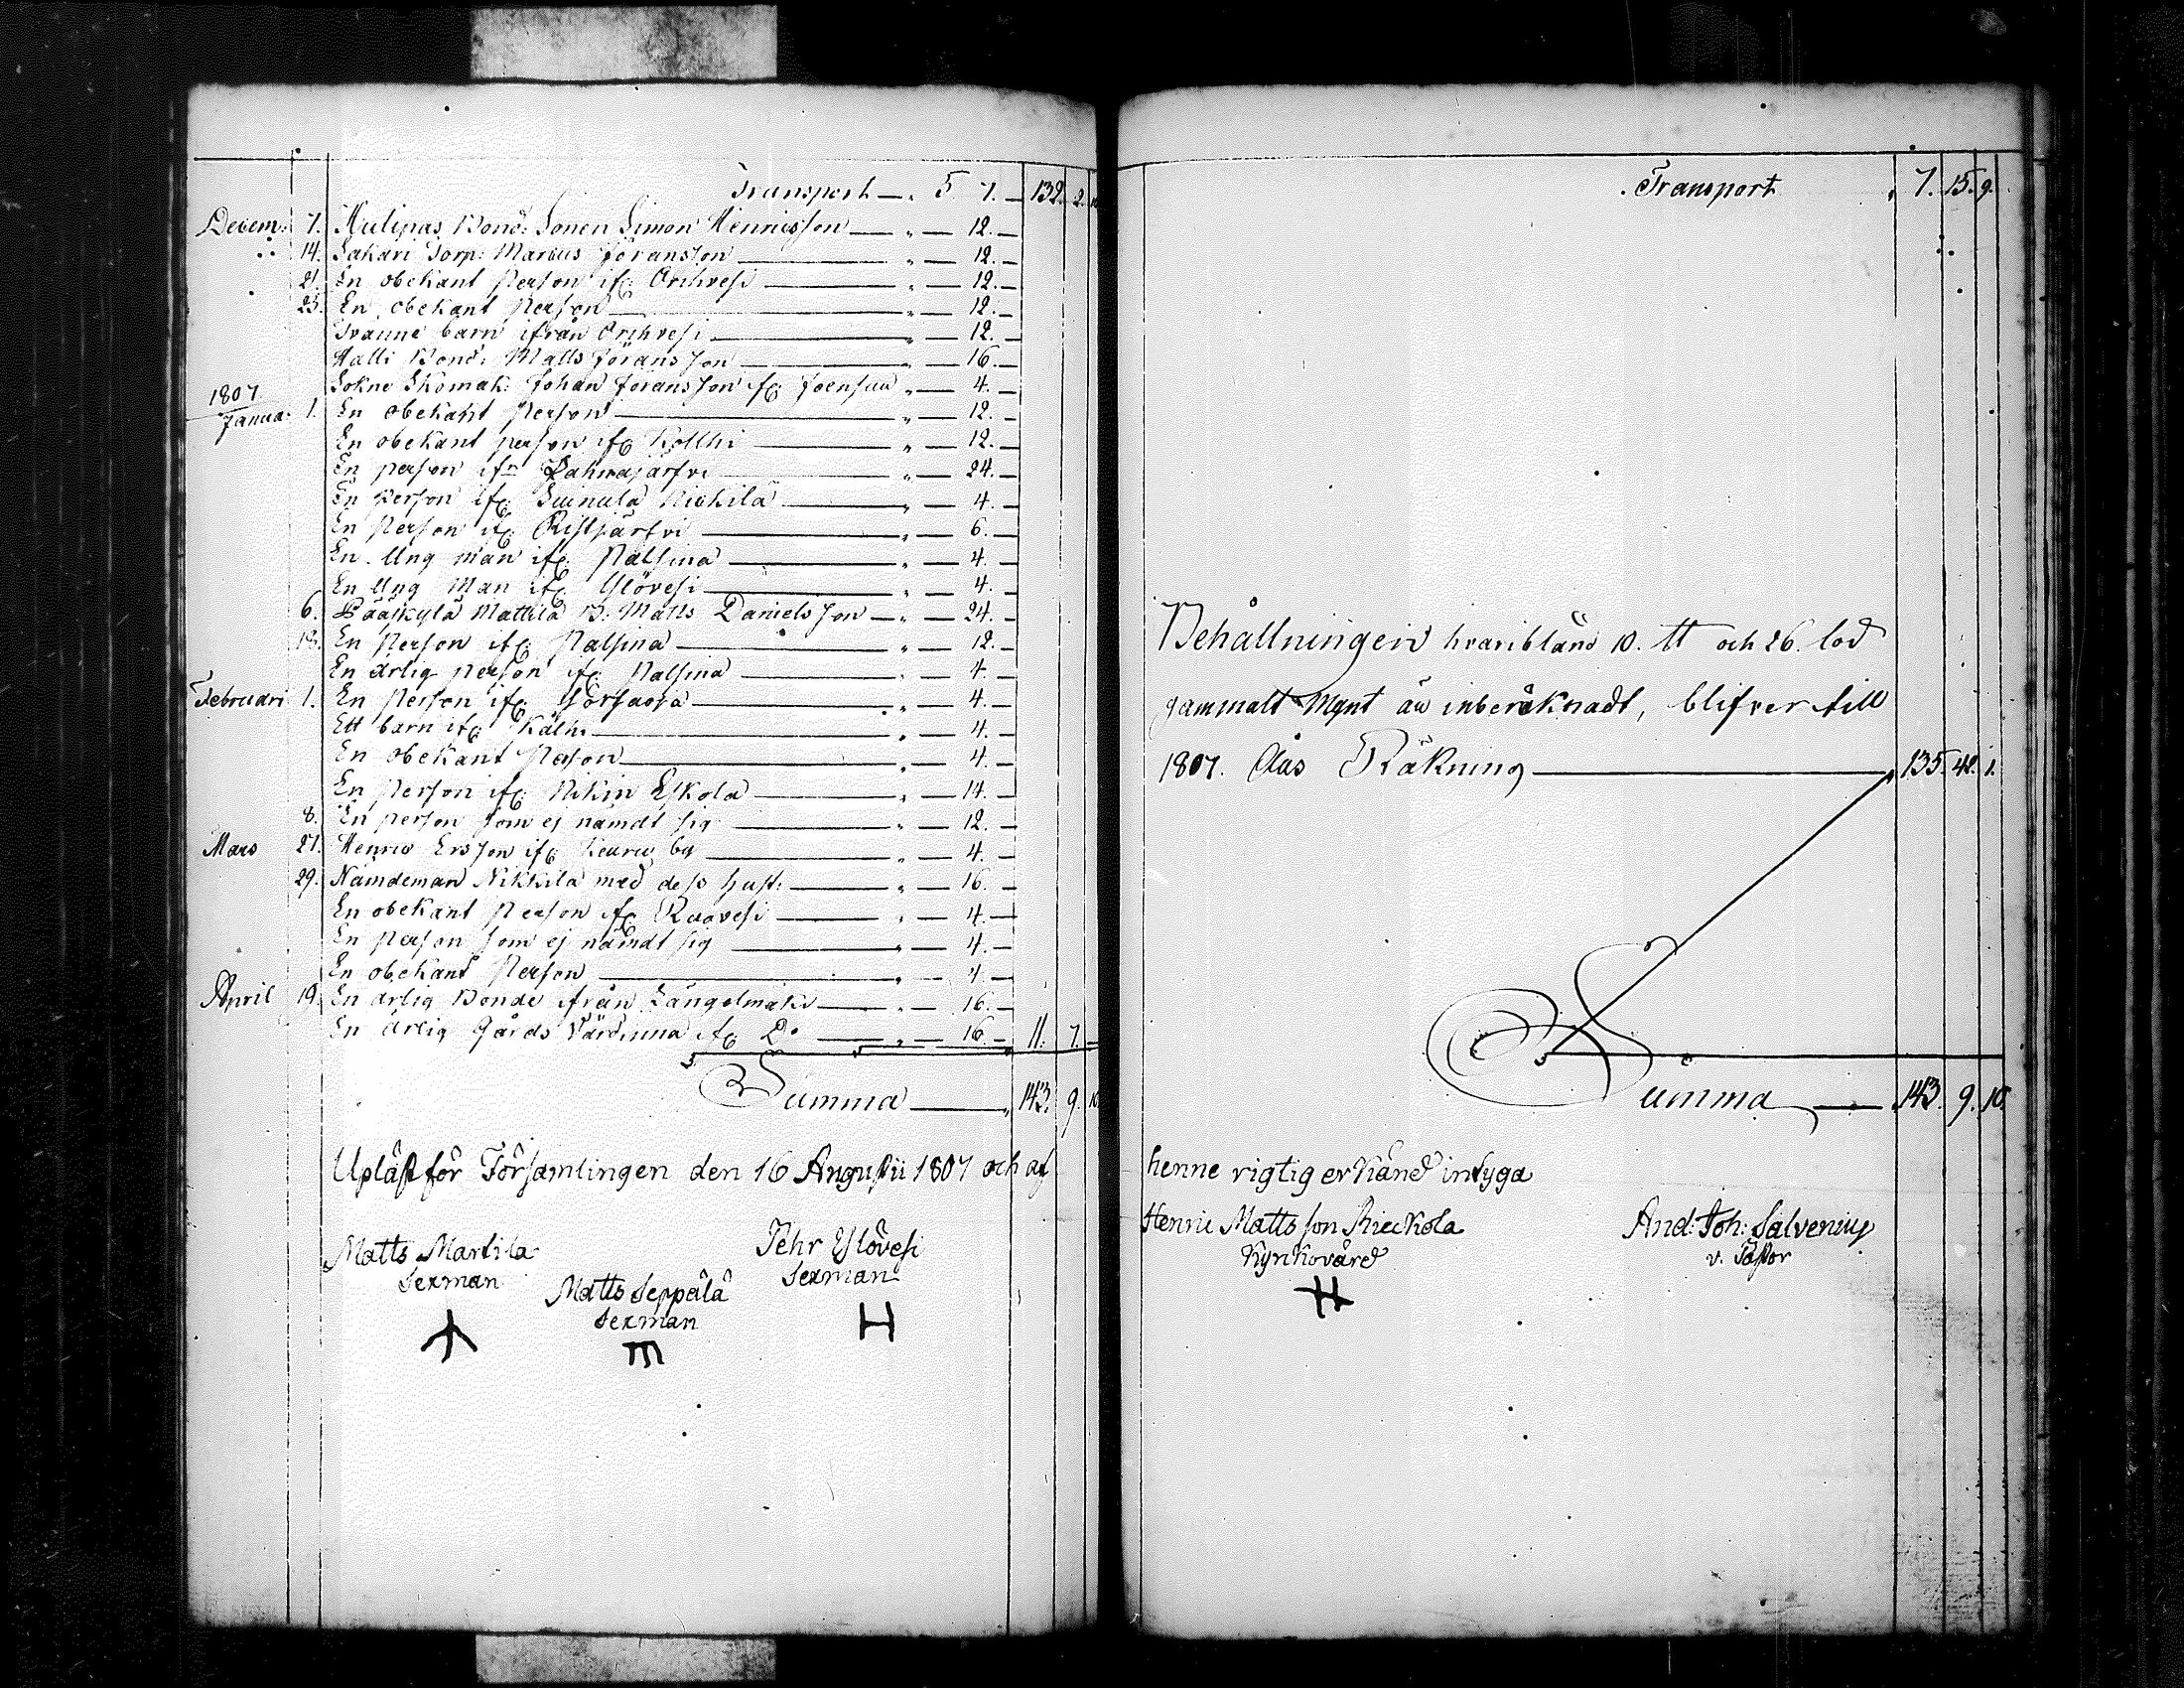 Transport — „ 5. 7. — 132. 2. 10
Decem: 7. Hulipas Bond: Sonen Simon Hennisson — „ — 12. —
14. Sakari Torp: Marcus Föransson — „ — 12. —
21. En obekant Person if: Orihvesi — „ — 12. —
25. En obekant Person — „ — 12. —
Tvanne barn ifrån Orihvesi — „ — 12. —
Halli Bond: Matts Föransson — „ — 16. —
Sokne Skomak: Johan Föransson if: Joensuu „ — 4. —
1807
Janua: 1. En obekant Person — „ — 12. —
En obekant person if: — „ — 12. —
En person ifr — „ — 24. —
En Person if: Suinula — „ — 4. —
En Person if: Ristjärfvi — „ — 6. —
En Ung man if: Palsina — „ — 4. —
En Ung Man if: Ylövesi — „ — 4. —
6. Pääskylä Mattila B: Matts Danielsson — „ — 24. —
13. En Person if: Palsina — „ — 12. —
En ärlig person if: Palsina — „ — 4. —
Februari 1. En Person if: — „ — 4. —
Ett barn if: — „ — 4. —
En obekant Person — „ — 4. —
En Person if: Eskola — „ — 14. —
8. En person som ej nämdt sig — „ — 12. —
Mars 27. Henric Ersson if: Keuru by — „ — 4. —
29. Nämdeman Nikkilä med dess hust: — „ — 16. —
En obekant Person if: Ruovesi — „ — 4. —
En Person som ej nämdt sig — „ — 4. —
En obekant Person — „ — 4. —
April 19. En ärlig Bonde ifrån Längelmäki — „ — 16. —
En ärlig Gårds Värdinna if: Do — „ — 16. — 11. 7. —
Summa — „ 143. 9. 10.
Upläst för Församlingen den 16 Augustii 1807 och af
Matts Martila
Sexman
Matts Seppälä
Sexman
Pehr Ylövesi
Sexman
Transport „ 7. 15. 9.
Behållningen hvaribland 10. ℔ och 26. lod
gammalt Mynt är inberäknadt, blifver till
1807. Års Räkning — „ 135. 42. 1.
Summa — 143. 9. 10.
henne rigtig erkänd intyga
Henric Mattsson Rieckola
Kyrkovärd
And: Joh: Salvenius
v. Pastor